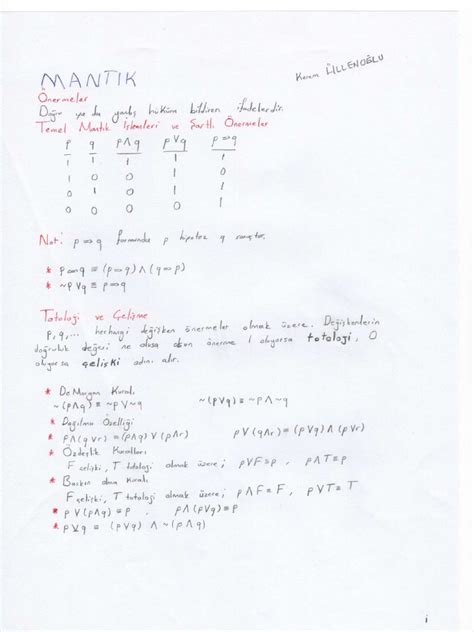 Kerem ÜLLENOĞLU
MANTIK
Önermeler
Doğru ya da yanlış hüküm bildiren ifadelerdir.
Temel Mantık İşlemleri ve Şartlı Önermeler
p q p∧q p∨q p⇒q
1 1 1 1 1
1 0 0 1 0
0 1 0 1 1
0 0 0 0 1
Not: p⇒q formunda p hipotez q sonuçtur.
* p⇔q ≡ (p⇒q) ∧ (q⇒p)
* ~p∨q ≡ p⇒q
Totoloji ve Çelişme
p, q, ... herhangi değişken önermeler olmak üzere. Değişkenlerin
doğruluk değeri ne olursa olsun önerme 1 oluyorsa totoloji, 0
oluyorsa çelişki adını alır.
* De Morgan Kuralı
~(p∧q) ≡ ~p∨~q ~(p∨q) ≡ ~p∧~q
* Dağılma Özelliği
* p∧(q∨r) ≡ (p∧q)∨(p∧r) p∨(q∧r) ≡ (p∨q)∧(p∨r)
* Özdeşlik Kuralları
F çelişki, T totoloji olmak üzere; p∨F≡p , p∧T≡p
* Baskın olma kuralı
F çelişki, T totoloji olmak üzere; p∧F≡F , p∨T≡T
* p∨(p∧q)≡p , p∧(p∨q)≡p
* p⊻q ≡ (p∨q) ∧ ~(p∧q)
i